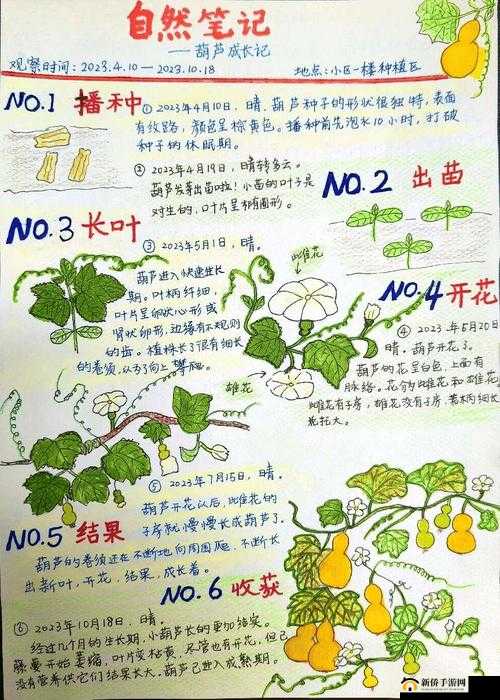 自然笔记
——葫芦成长记
观察时间：2023.4.10—2023.10.18
地点：小区一楼种植区
NO.1 播种
① 2023年4月10日，晴。葫芦种子的形状很独特，表面
有纹路，颜色呈棕黄色。播种前先泡水10小时，打破
种子的休眠期。
② 2023年4月19日，晴转多云。
葫芦发芽出苗啦！小苗的叶子是
对生的，叶片呈卵圆形。
NO.2 出苗
NO.3 长叶
③ 2023年5月1日，晴。
葫芦进入快速生长
期。叶柄纤细，
叶片呈卵状心形或
肾状卵形，边缘有不规则
的齿。植株长了很有细长
的卷须，从了向上攀爬。
雌花
雄花
NO.4 开花
④ 2023年5月20日
晴。葫芦开花了。
葫芦的花呈白色，上面有
脉络。花分雌花和雄花
雌花有子房，雄花没有子房，花柄细长
花托大。
⑤ 2023年7月15日，晴。
葫芦开花以后，雌花的
子房就慢慢长成葫芦了。
NO.5 结果
葫芦的卷须还在不断地向周围爬，不断长
出新叶，开花，结果，成长着。
NO.6 收获
⑥ 2023年10月18日，晴。
经过几个月的生长期，小葫芦长的更加结实。
藤蔓开始萎缩，叶片变枯黄，尽管也有开花，但已
没有营养供它们结果长大。葫芦已进入成熟期。
新侨手游网